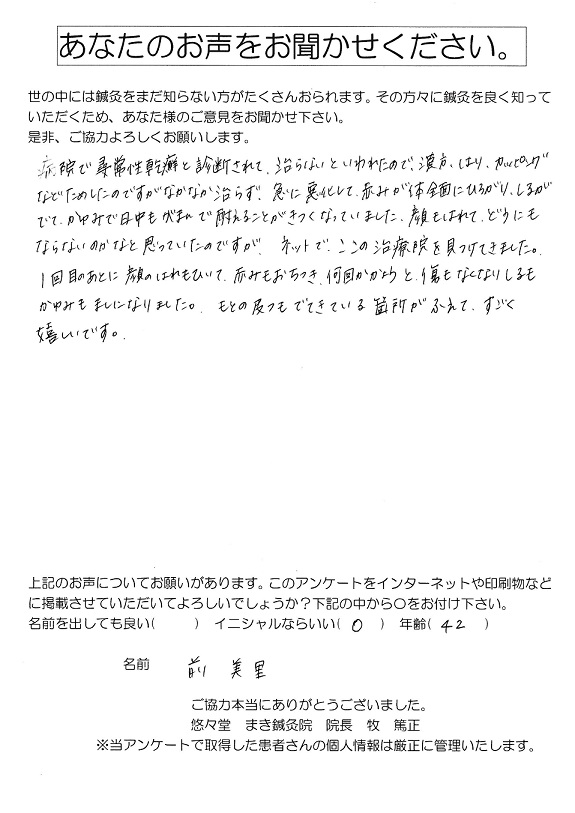 あなたのお声をお聞かせください。
世の中には鍼灸をまだ知らない方がたくさんおられます。その方々に鍼灸を良く知って
いただくため、あなた様のご意見をお聞かせ下さい。
是非、ご協力よろしくお願いします。
病院で尋常性乾癬と診断されて、治らないといわれたので、漢方、はり、カッピング
などためしたのですがなかなか治らず、急に悪化して、赤みが体全面にひろがり、しるが
でて、かゆみで日中も夜まで耐えることがきつくなっていました、顔もはれて、どうにも
ならないのかなと思っていたのですが、ネットで、ここの治療院を見つけてきました。
1回目のあとに顔のはれもひいて、赤みもおちつき、何回かかようと、傷もなくなりしるも
かゆみもましになりました。もとの皮フもでてきている箇所がふえて、すごく
嬉しいです。
上記のお声についてお願いがあります。このアンケートをインターネットや印刷物など
に掲載させていただいてよろしいでしょうか?下記の中から〇をお付け下さい。
名前を出しても良い( ) イニシャルならいい( 〇 ) 年齢( 42 )
名前 前 美里
ご協力本当にありがとうございました。
悠々堂 まき鍼灸院 院長 牧 篤正
※当アンケートで取得した患者さんの個人情報は厳正に管理いたします。